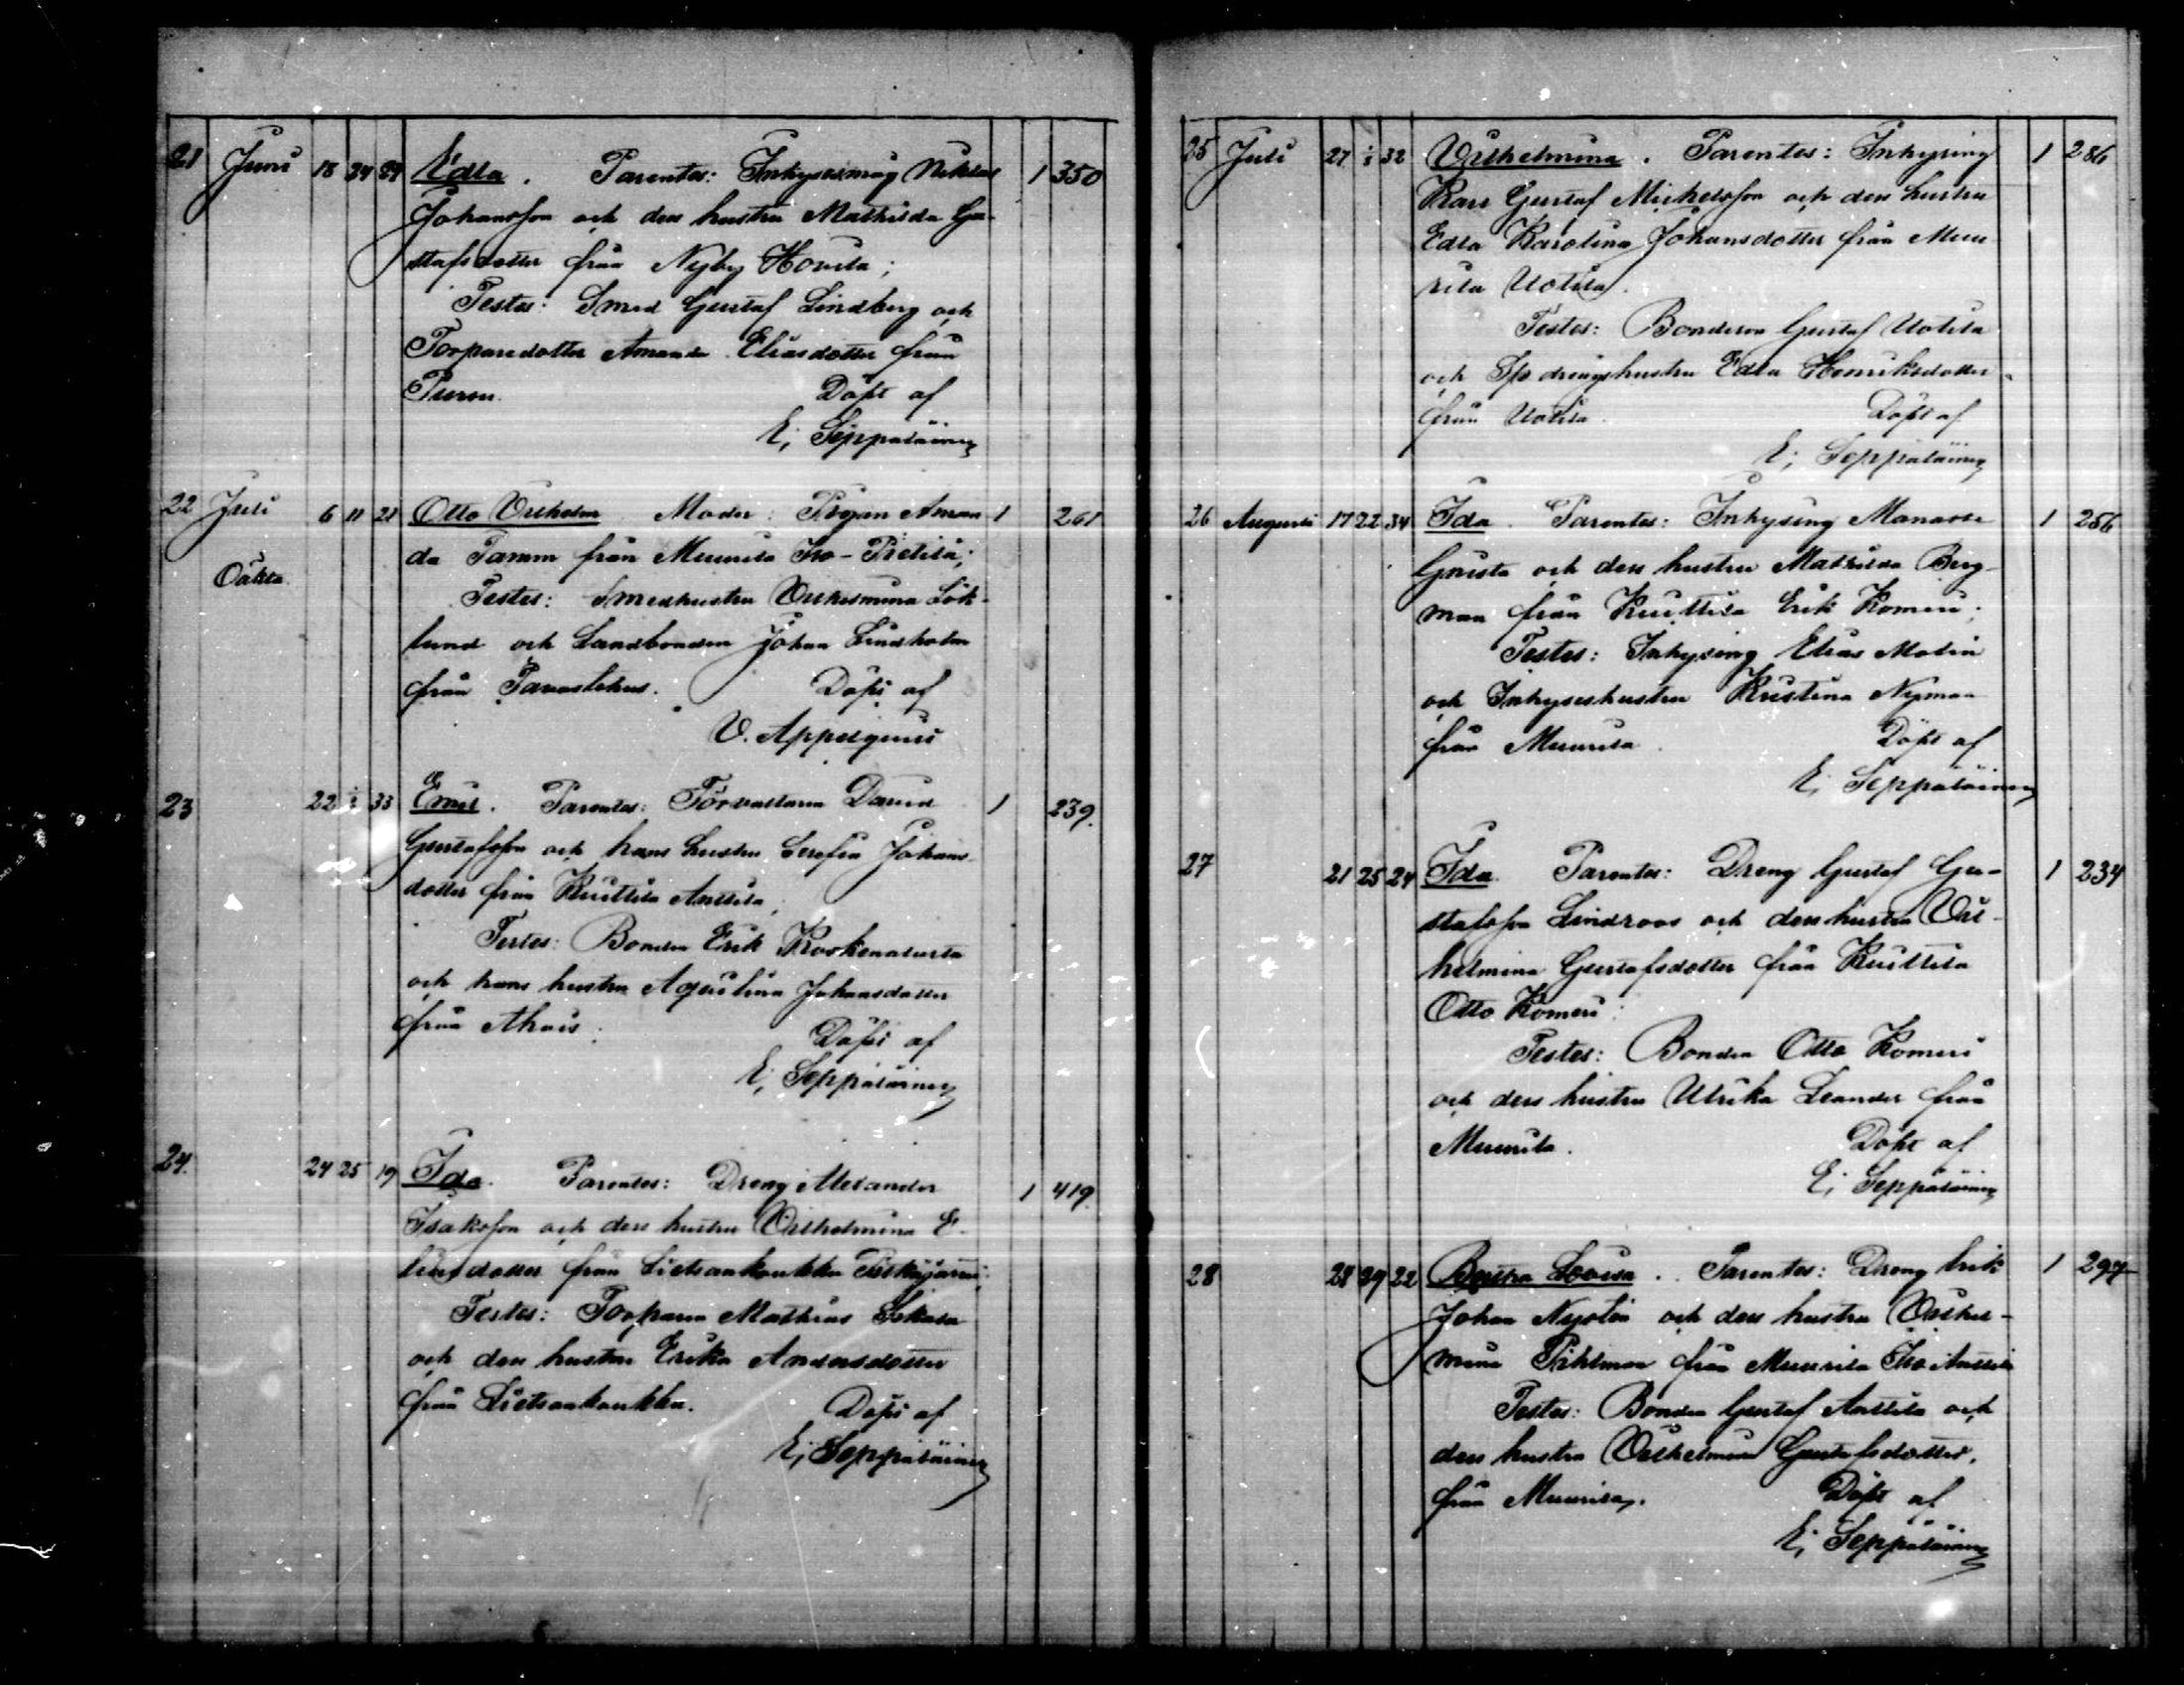 21 Juni 18 24 29 Edla. Parentes: Inhysesmag Niklas 1 350
Johansson och dess hustru Mathilda Gu-
stafsdotter från Nyby Hovila;
Testes: Smed Gustaf Lindberg och
Torparedotter Amanda Eliasdotter från
Puron. Döpt af
E; Seppäläinen
22 Juli 6 11 21 Otto Vilhelm Moder: Pigan Aman- 1 261
Oäkta
da Tamm från Muurila Iso-Pietilä;
Testes: Smedhustru Vilhelmina Lök-
lund och Landbonden Johan Lindholm
från Tavastehus. Döpt af
V. Appelgren
23 22 33 Emil. Parentes: Förvaltaren David 1 239.
Gustafsson och hans hustru Serafia Johans-
dotter från Kuittila Anttila,
Testes: Bonden Erik Koskenalusta
och hans hustru Aqvilina Johansdotter
från Ahois. Döpt af
E; Seppäläinen
24. 24 25 19 Ida. Parentes: Dreng Alexander 1 419
Isaksson och dess hustru Vilhelmina E-
liasdotter från Lietsankoukku Pitkäjärvi.
Testes: Torparen Mathias
och dess hustru Erika Andersdotter
från Lietsankoukku. Döpt af
E; Seppäläinen
25 Juli 27 32 Vilhelmina. Parentes: Inhysing 1 286
Karl Gustaf Michelsson och dess hustru
Edla Karolina Johansdotter från Muu
rila Uotila.
Testes: Bondeson Gustaf Uotila
och Spdrengshustru Edla Henriksdotter
från Uotila. Döpt af
E; Seppäläinen
26 Augusti 17 22 34 Ida. Parentes: Inhysing Manasse 1 256
och dess hustru Mathilda Berg-
man från Kuittila Erik Komeri;
Testes: Inhysing Elias Malin
och Inhyseshustru Kristina Nyman
från Muurila. Döpt af
E; Seppäläinen
27 21 25 24 Ida. Parentes: Dreng Gustaf Gu- 1 234
stafsson Lindroos och dess hustru Vil-
helmina Gustafsdotter från Kuittila
Otto Komeri:
Testes: Bonden Otto Komeri
och dess hustru Ulrika Leander från
Muurila. Döpt af
E; Seppäläinen
28 28 29 22 Bertha Lovisa. Parentes: Dreng Erik 1 297
Johan Nyolin och dess hustru Vilhel-
mina Pihlman från Muurila Iso Anttila
Testes: Bonden Gustaf Anttila och
dess hustru Vilhelmina Gustafsdotter,
från Muurila. Döpt af
E; Seppäläinen